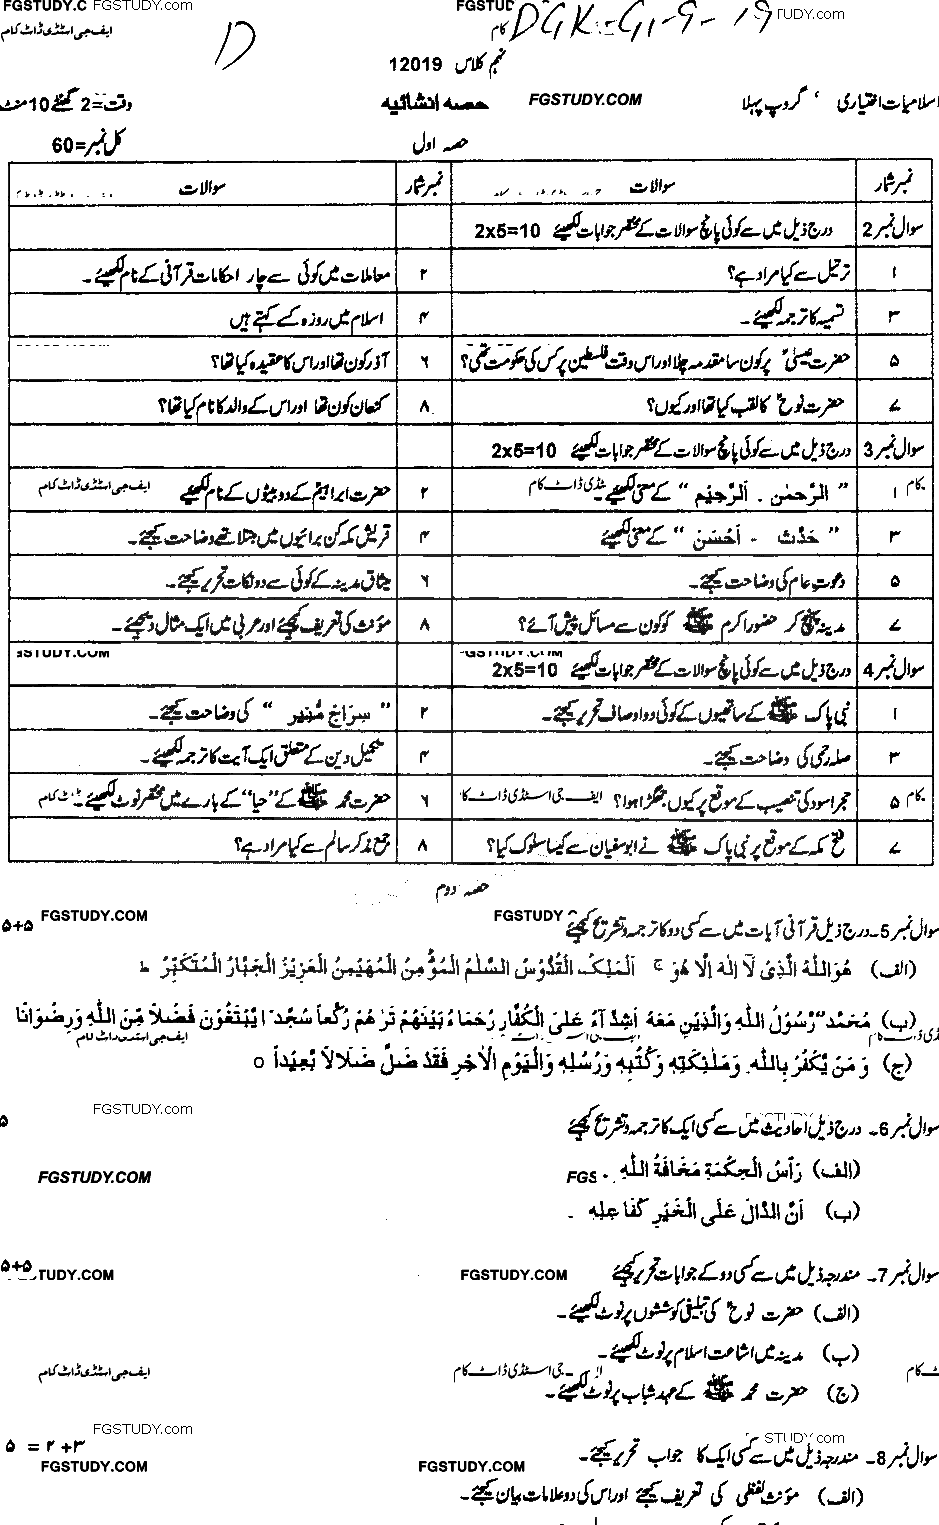 FGSTUDY.C FGSTUDY.com FGSTUD TUDY.com
ایف جی اسٹڈی ڈاٹ کام کام DGK-G1-9-19
D
نہم کلاس 12019
اسلامیات اختیاری ، گروپ پہلا FGSTUDY.COM حصہ انشائیہ وقت=2 گھنٹے 10 منٹ
حصہ اول کل نمبر=60
نمبر شمار سوالات نمبر شمار سوالات
سوال نمبر 2 درج ذیل میں سے کوئی پانچ سوالات کے مختصر جوابات لکھیئے 2x5=10
۱ ترتیل سے کیا مراد ہے؟ ۲ معاملات میں کوئی سے چار احکامات قرآنی کے نام لکھیئے۔
۳ تسمیہ کا ترجمہ لکھیئے۔ ۴ اسلام میں روزہ کسے کہتے ہیں
۵ حضرت عیسیٰؑ پر کون سا مقدمہ چلا اور اس وقت فلسطین پر کس کی حکومت تھی؟ ۶ آذر کون تھا اور اس کا عقیدہ کیا تھا؟
۷ حضرت نوحؑ کا لقب کیا تھا اور کیوں؟ ۸ کنعان کون تھا اور اس کے والد کا نام کیا تھا؟
سوال نمبر 3 درج ذیل میں سے کوئی پانچ سوالات کے مختصر جوابات لکھیئے 2x5=10
کام ۱ "الرَّحْمٰن ۔ اَلرَّحِیْم" کے معنی لکھیئے۔ سٹڈی ڈاٹ کام ۲ حضرت ابراہیمؑ کے دو بیٹوں کے نام لکھیئے ایف جی اسٹڈی ڈاٹ کام
۳ "حَدَّثَ ۔ اَحْسَنَ" کے معنی لکھیئے ۴ قریش مکہ کن برائیوں میں مبتلا تھے وضاحت کیجئے۔
۵ دعوت عام کی وضاحت کیجئے۔ ۶ میثاق مدینہ کے کوئی سے دو نکات تحریر کیجئے۔
۷ مدینہ پہنچ کر حضور اکرم ﷺ کو کون سے مسائل پیش آئے؟ ۸ مؤنث کی تعریف کیجئے اور عربی میں ایک مثال دیجئے۔
GSTUDY.COM STUDY.COM
سوال نمبر 4 درج ذیل میں سے کوئی پانچ سوالات کے مختصر جوابات لکھیئے 2x5=10
۱ نبی پاک ﷺ کے ساتھیوں کے کوئی دو اوصاف تحریر کیجئے۔ ۲ "سِرَاجٌ مُّنِیْر" کی وضاحت کیجئے۔
۳ صلہ رحمی کی وضاحت کیجئے۔ ۴ تکمیل دین کے متعلق ایک آیت کا ترجمہ لکھیئے۔
کام ۵ حجر اسود کی تنصیب کے موقع پر کیوں جھگڑا ہوا؟ ایف جی اسٹڈی ڈاٹ کا ۶ حضرت محمد ﷺ کے "حیا" کے بارے میں مختصر نوٹ لکھیئے۔ ڈاٹ کام
۷ فتح مکہ کے موقع پر نبی پاک ﷺ نے ابو سفیان سے کیسا سلوک کیا؟ ۸ جمع مذکر سالم سے کیا مراد ہے؟
حصہ دوم
FGSTUDY FGSTUDY.COM
سوال نمبر 5۔ درج ذیل قرآنی آیات میں سے کسی دو کا ترجمہ و تشریح کیجئے ۵+۵
(الف) هُوَ اللّٰهُ الَّذِیْ لَآ اِلٰهَ اِلَّا هُوَ ج اَلْمَلِکُ الْقُدُّوْسُ السَّلٰمُ الْمُؤْمِنُ الْمُهَیْمِنُ الْعَزِیْزُ الْجَبَّارُ الْمُتَکَبِّرُ ط
(ب) مُحَمَّدٌ رَّسُوْلُ اللّٰهِ وَالَّذِیْنَ مَعَهٗ اَشِدَّآءُ عَلَی الْکُفَّارِ رُحَمَآءُ بَیْنَهُمْ تَرٰهُمْ رُکَّعاً سُجَّدًا یَّبْتَغُوْنَ فَضْلاً مِّنَ اللّٰهِ وَرِضْوَانًا
ڈی ڈاٹ کام ایف جی اسٹڈی ڈاٹ کام
(ج) وَمَنْ یَّکْفُرْ بِاللّٰهِ وَمَلٰٓئِکَتِهٖ وَکُتُبِهٖ وَرُسُلِهٖ وَالْیَوْمِ الْاٰخِرِ فَقَدْ ضَلَّ ضَلٰلاً بَعِیْداً ○
FGSTUDY.com STUDY.com
سوال نمبر 6۔ درج ذیل احادیث میں سے کسی ایک کا ترجمہ و تشریح کیجئے ۵
(الف) رَأْسُ الْحِکْمَةِ مَخَافَةُ اللّٰهِ
FGS FGSTUDY.COM
(ب) اَنَّ الدَّالَ عَلَی الْخَیْرِ کَفَاعِلِهٖ ۔
سوال نمبر 7۔ مندرجہ ذیل میں سے کسی دو کے جوابات تحریر کیجئے ۵+۵
FGSTUDY.COM TUDY.COM
(الف) حضرت نوحؑ کی تبلیغی کوششوں پر نوٹ لکھیئے۔
(ب) مدینہ میں اشاعت اسلام پر نوٹ لکھیئے۔
کام جی اسٹڈی ڈاٹ کام ایف جی اسٹڈی ڈاٹ کام
(ج) حضرت محمد ﷺ کے عہد شباب پر نوٹ لکھیئے۔
STUDY.com FGSTUDY.com
سوال نمبر 8۔ مندرجہ ذیل میں سے کسی ایک کا جواب تحریر کیجئے۔ ۳+۲ = ۵
FGSTUDY.COM FGSTUDY.COM
(الف) مؤنث لفظی کی تعریف کیجئے اور اس کی دو علامات بیان کیجئے۔